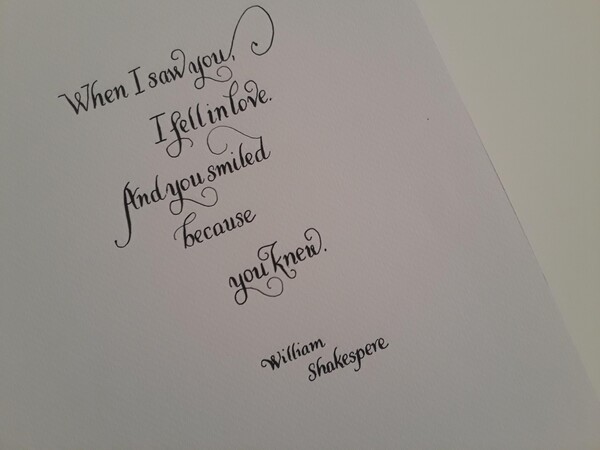 When I saw you,
I fell in love.
And you smiled
because
you knew.
William
Shakespere